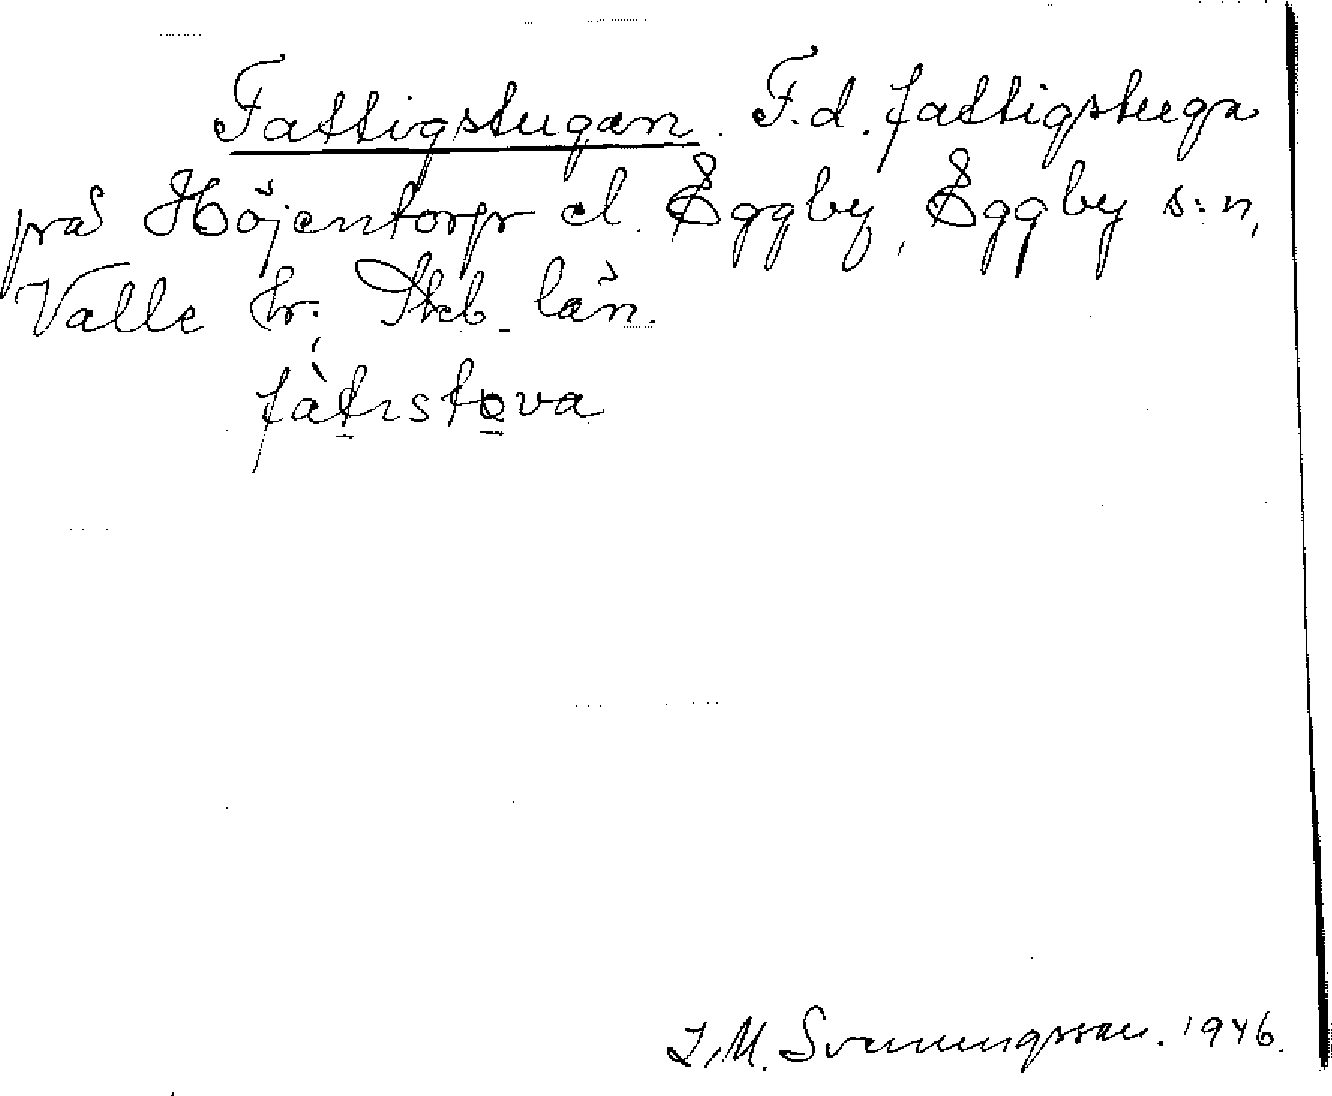 Fattigstugan. F.d. fattigstuga
på Höjentorp el. Eggby, Eggby s:n,
Valle hr. Skb. län.
fàtɩstova
J.M. Svenungsson. 1946.